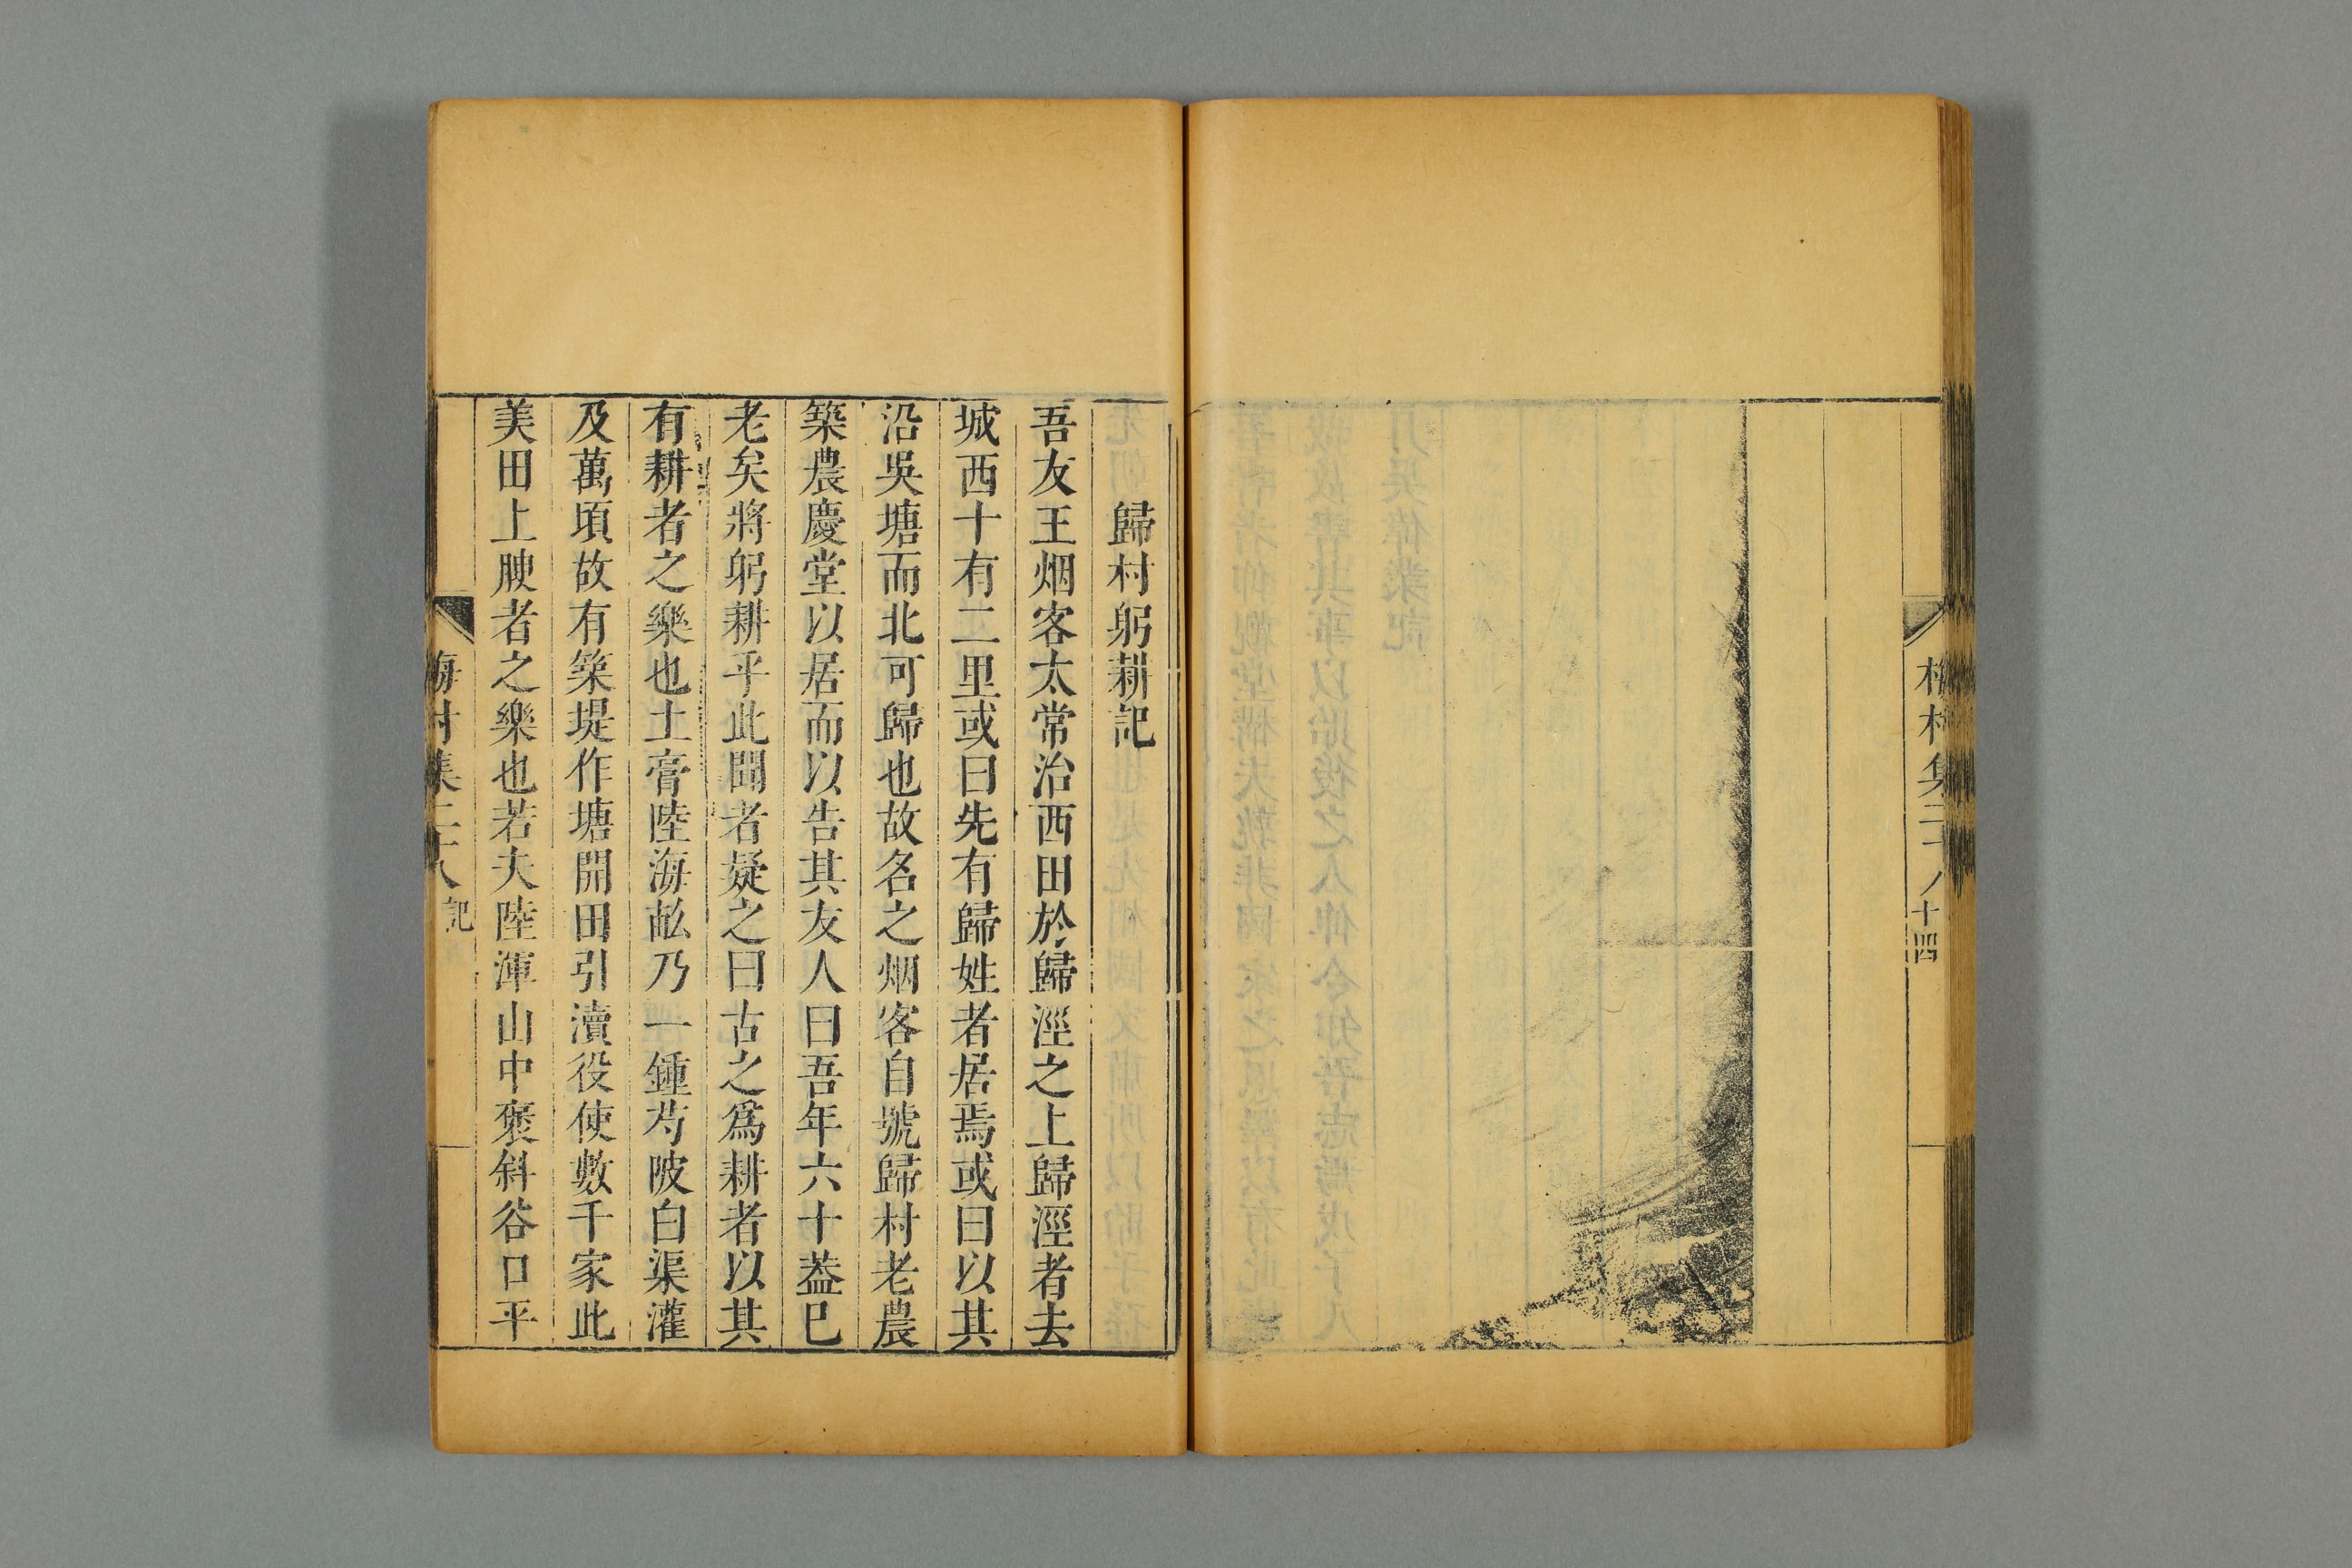 十四
歸村躬耕記
吾友王烟客太常治西田於歸涇之上歸涇者去
城西十有二里或曰先有歸姓者居焉或曰以其
沿吳塘而北可歸也故名之烟客自號歸村老農
築農慶堂以居而以告其友人曰吾年六十葢已
老矣將躬耕乎此聞者疑之曰古之爲耕者以其
有耕者之樂也土膏陸海畝乃一鍾芍陂白渠灌
及萬頃故有築堤作塘開田引瀆役使數千家此
美田上腴者之樂也若夫陸渾山中褒斜谷口平
梅村集二十八 記